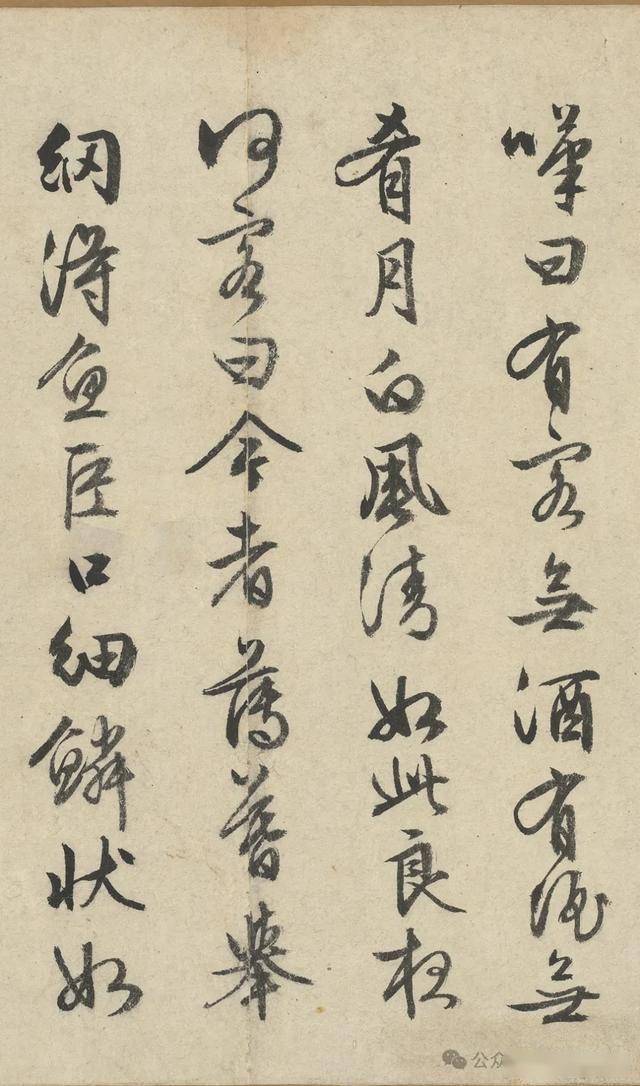 嘆曰有客無酒有酒無
肴月白風清如此良夜
何客曰今者薄暮舉
網得魚巨口細鱗狀如
公众